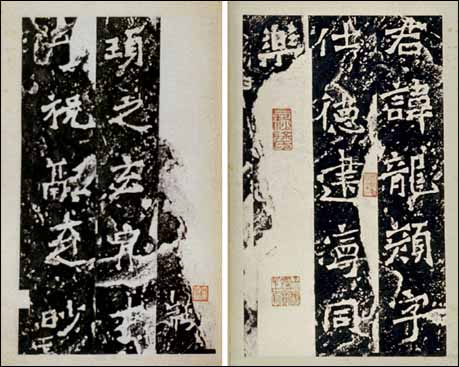 君諱龍顏字
仕德建寧同
樂
頊之玄胄才
子祝融之眇